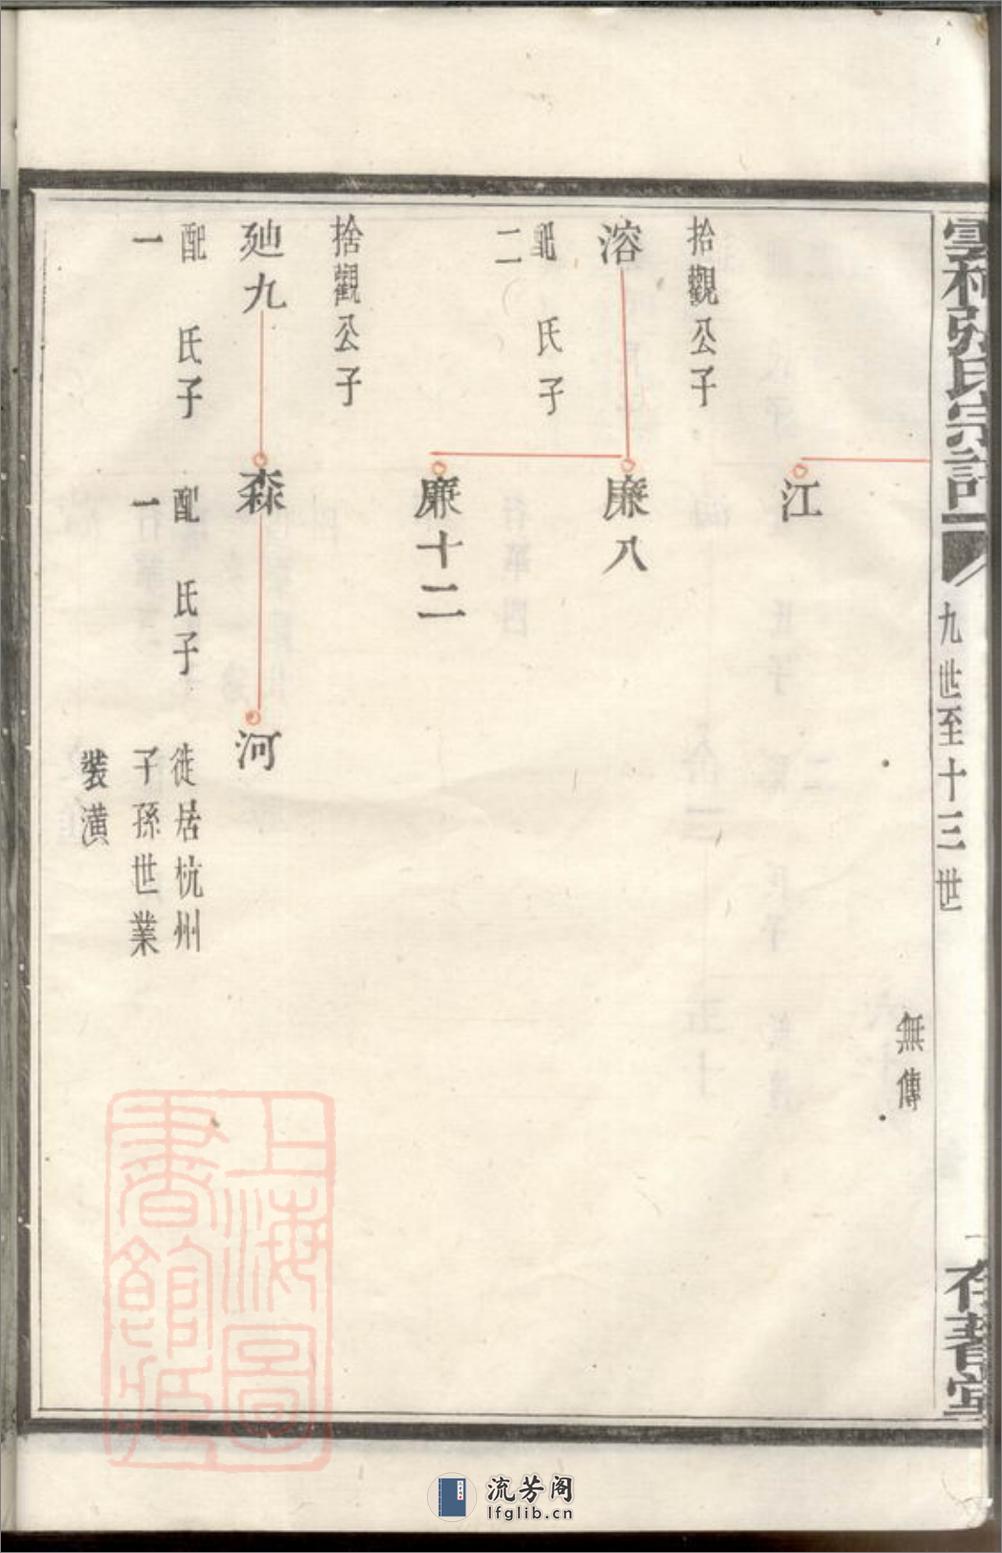 雲村張氏宗譜
九世至十三世
存著堂
無傳
江
拾觀公子
溶
配 氏子
二
廉八
廉十二
捨觀公子
廸九
配 氏子
一
森
配 氏子
一
河
徙居杭州
子孫世業
裝潢
上海圖
書館藏
流芳阁
lfglib.cn